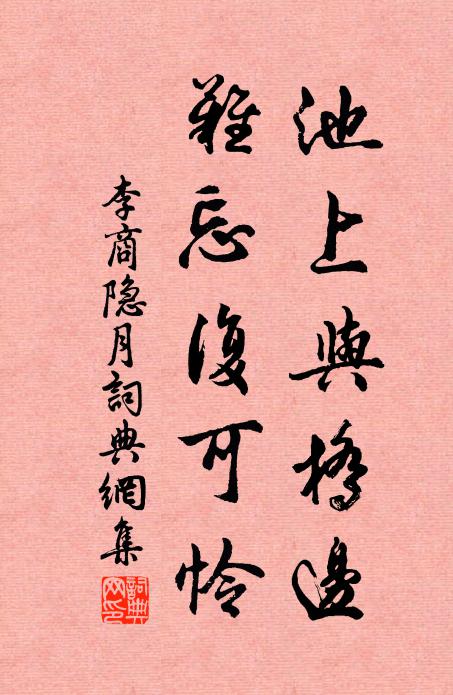 池上與橋邊
難忘復可憐
李商隐月詞典網集
詞典網印